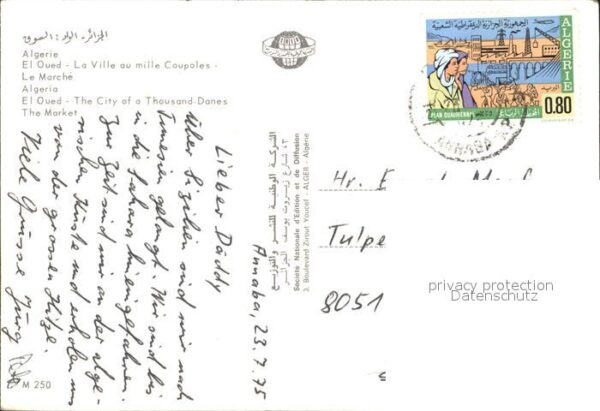 الجزائر - الواد : السوق
Algerie
El Oued - La Ville au mille Coupoles -
Le Marché
Algeria
El Oued - The City of a Thousand Danes
The Market
Annaba, 23.7.75
Lieber Daddy
Über Sizilien sind wir nach
Tunesien gelangt. Wir sind bis
in die Sahara hineingefahren.
Zur Zeit sind wir an der alge-
rischen Küste und erholen uns
von der grossen Hitze.
Viele Grüsse Jürg
M 250
الشركة الوطنية للنشر والتوزيع
٤٣ شارع زيروت يوسف الجزائر
Société Nationale d'Edition et de Diffusion
3, Boulevard Zirout Youcef - ALGER - Algérie
الجمهورية الجزائرية الديمقراطية الشعبية
ALGERIE
البريد
0.80
PLAN QUADRIENNAL
ANNABA
Hr.
Tulpe
8051
privacy protection
Datenschutz